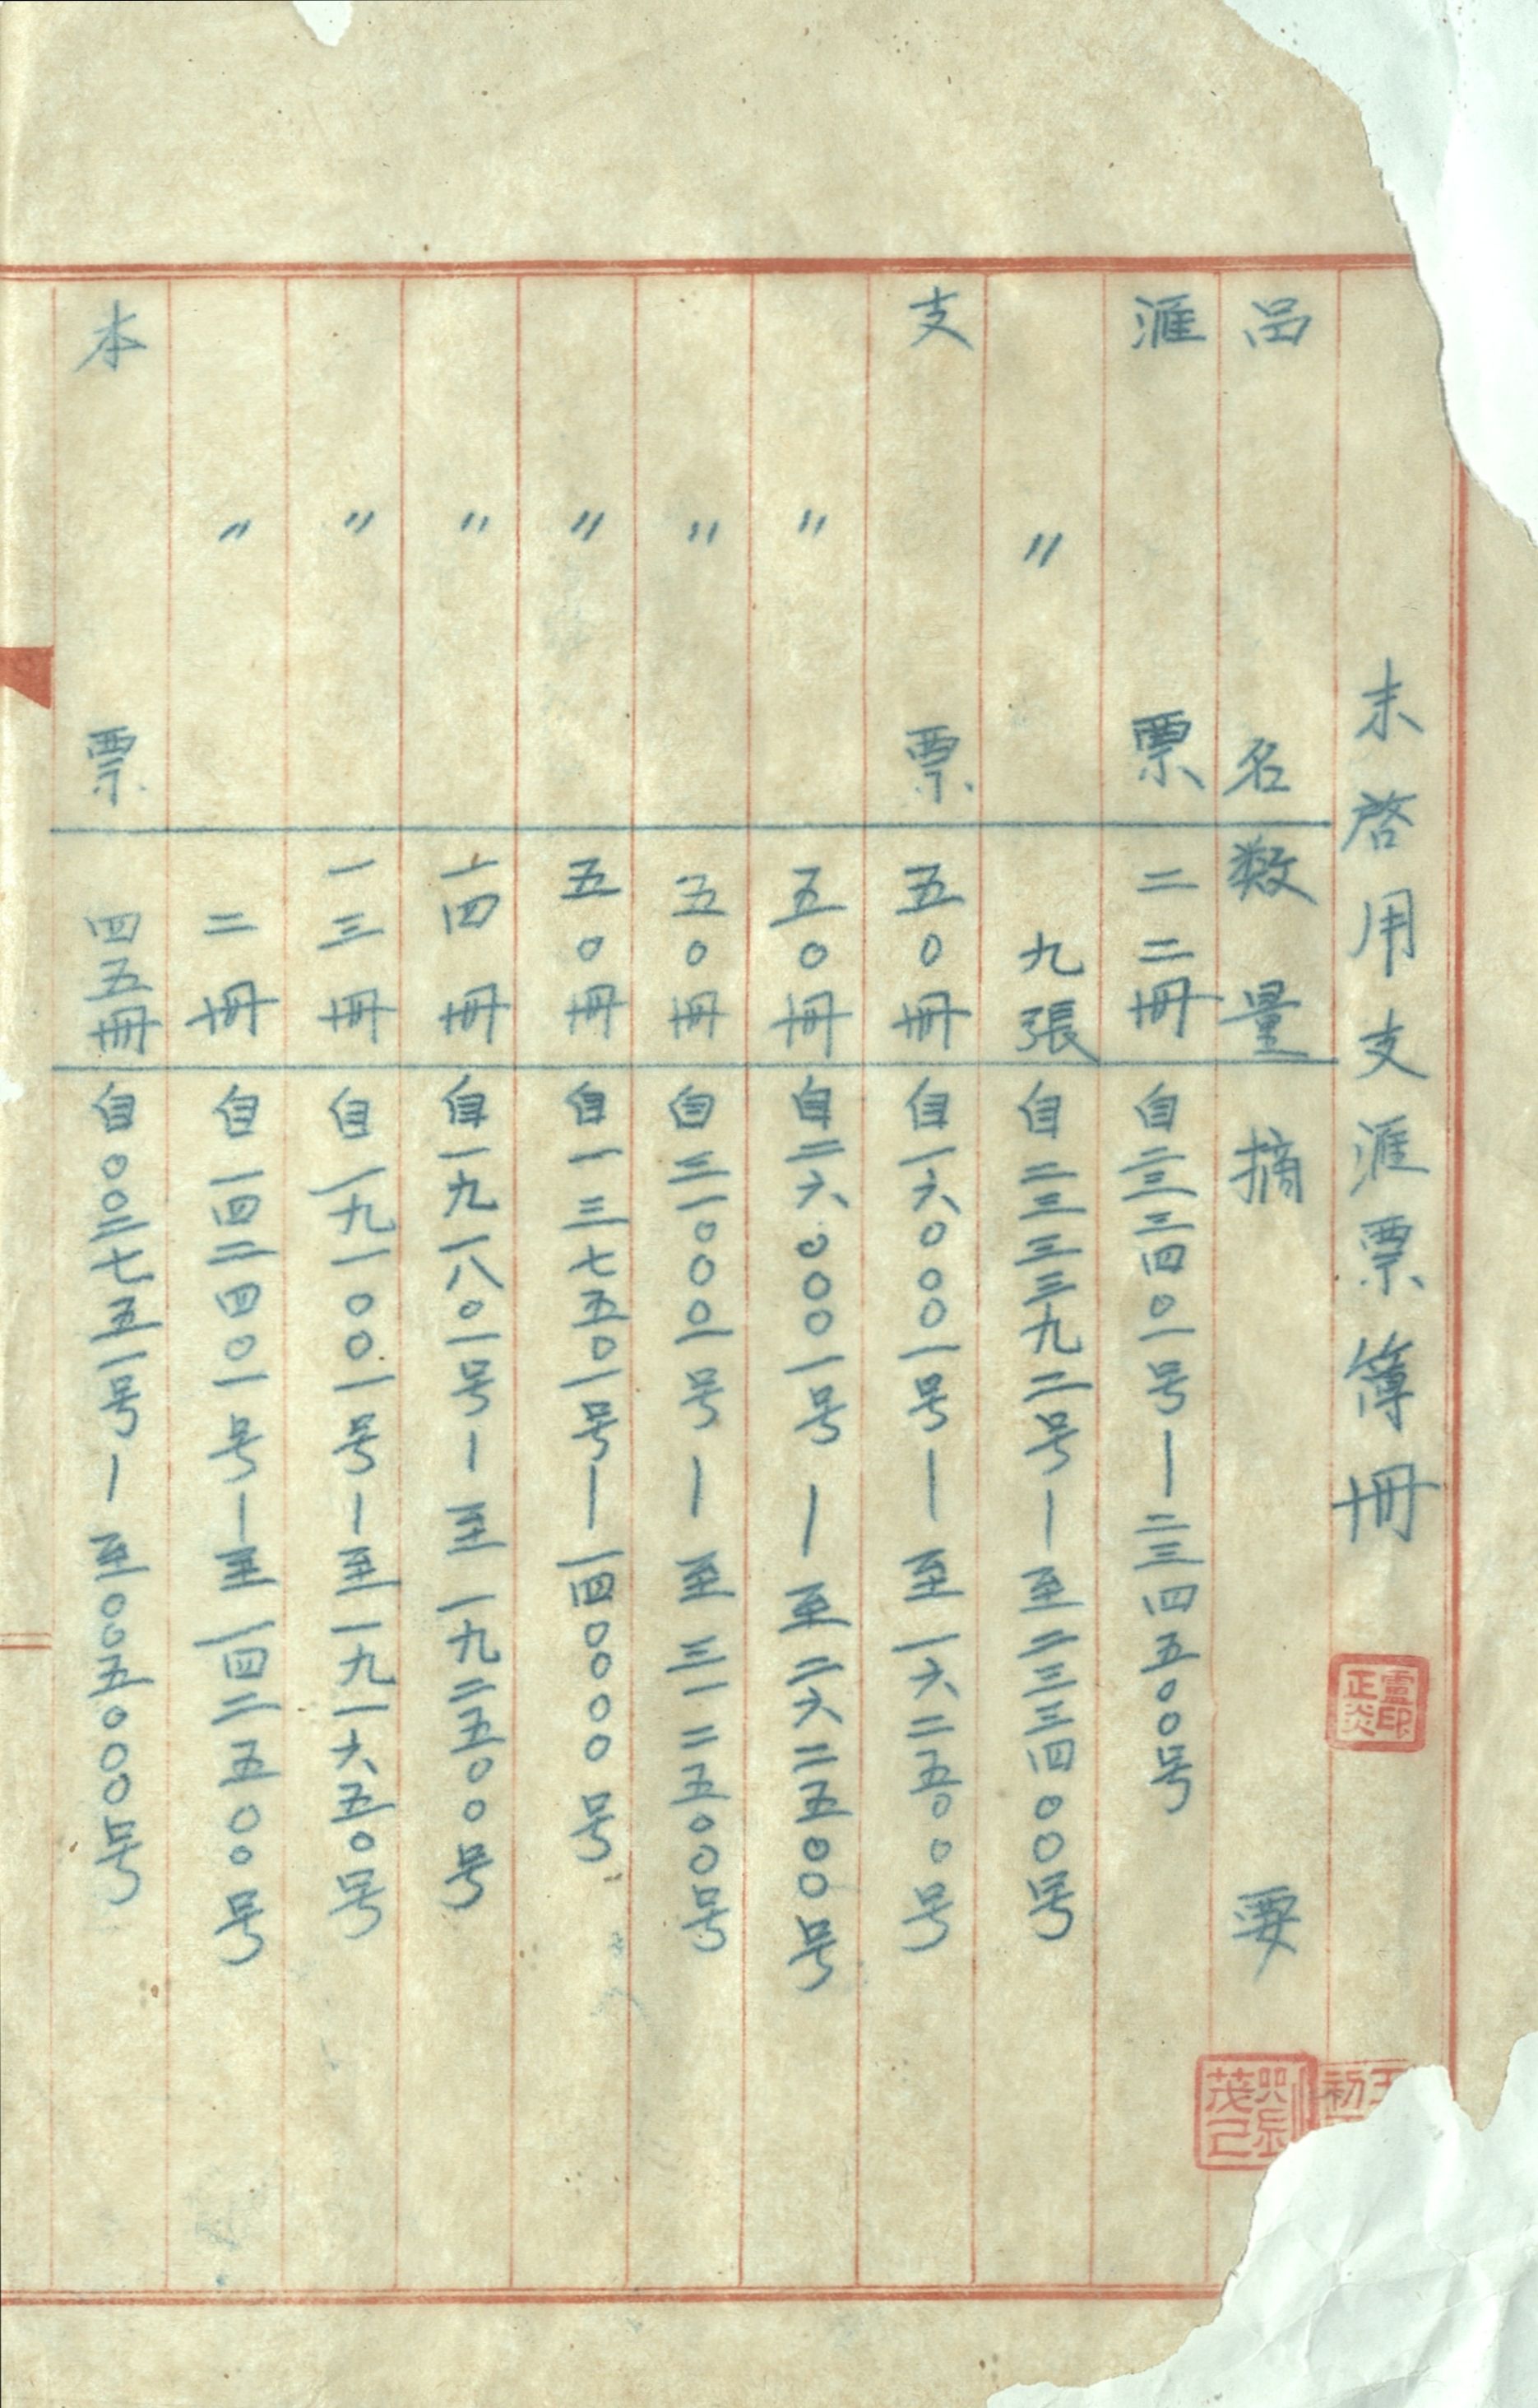 未啓用支滙票簿冊
品名 数量 摘要
滙票 二二冊 自二三三四〇一号—二三四五〇〇号
〃 九張 自二三三三九二号—至二三三四〇〇号
支票 五〇冊 自一六〇〇〇一号—至一六二五〇〇号
〃 五〇冊 自二六〇〇〇一号—至二六二五〇〇号
〃 五〇冊 自三一〇〇〇一号—至三一二五〇〇号
〃 五〇冊 自一三七五〇一号—一四〇〇〇〇号
〃 一四冊 自一九一八〇一号—至一九二五〇〇号
〃 一三冊 自一九一〇〇一号—至一九一六五〇号
〃 二冊 自一四二四〇一号—至一四二五〇〇号
本票 四五冊 自〇〇二七五一号—至〇〇五〇〇〇号